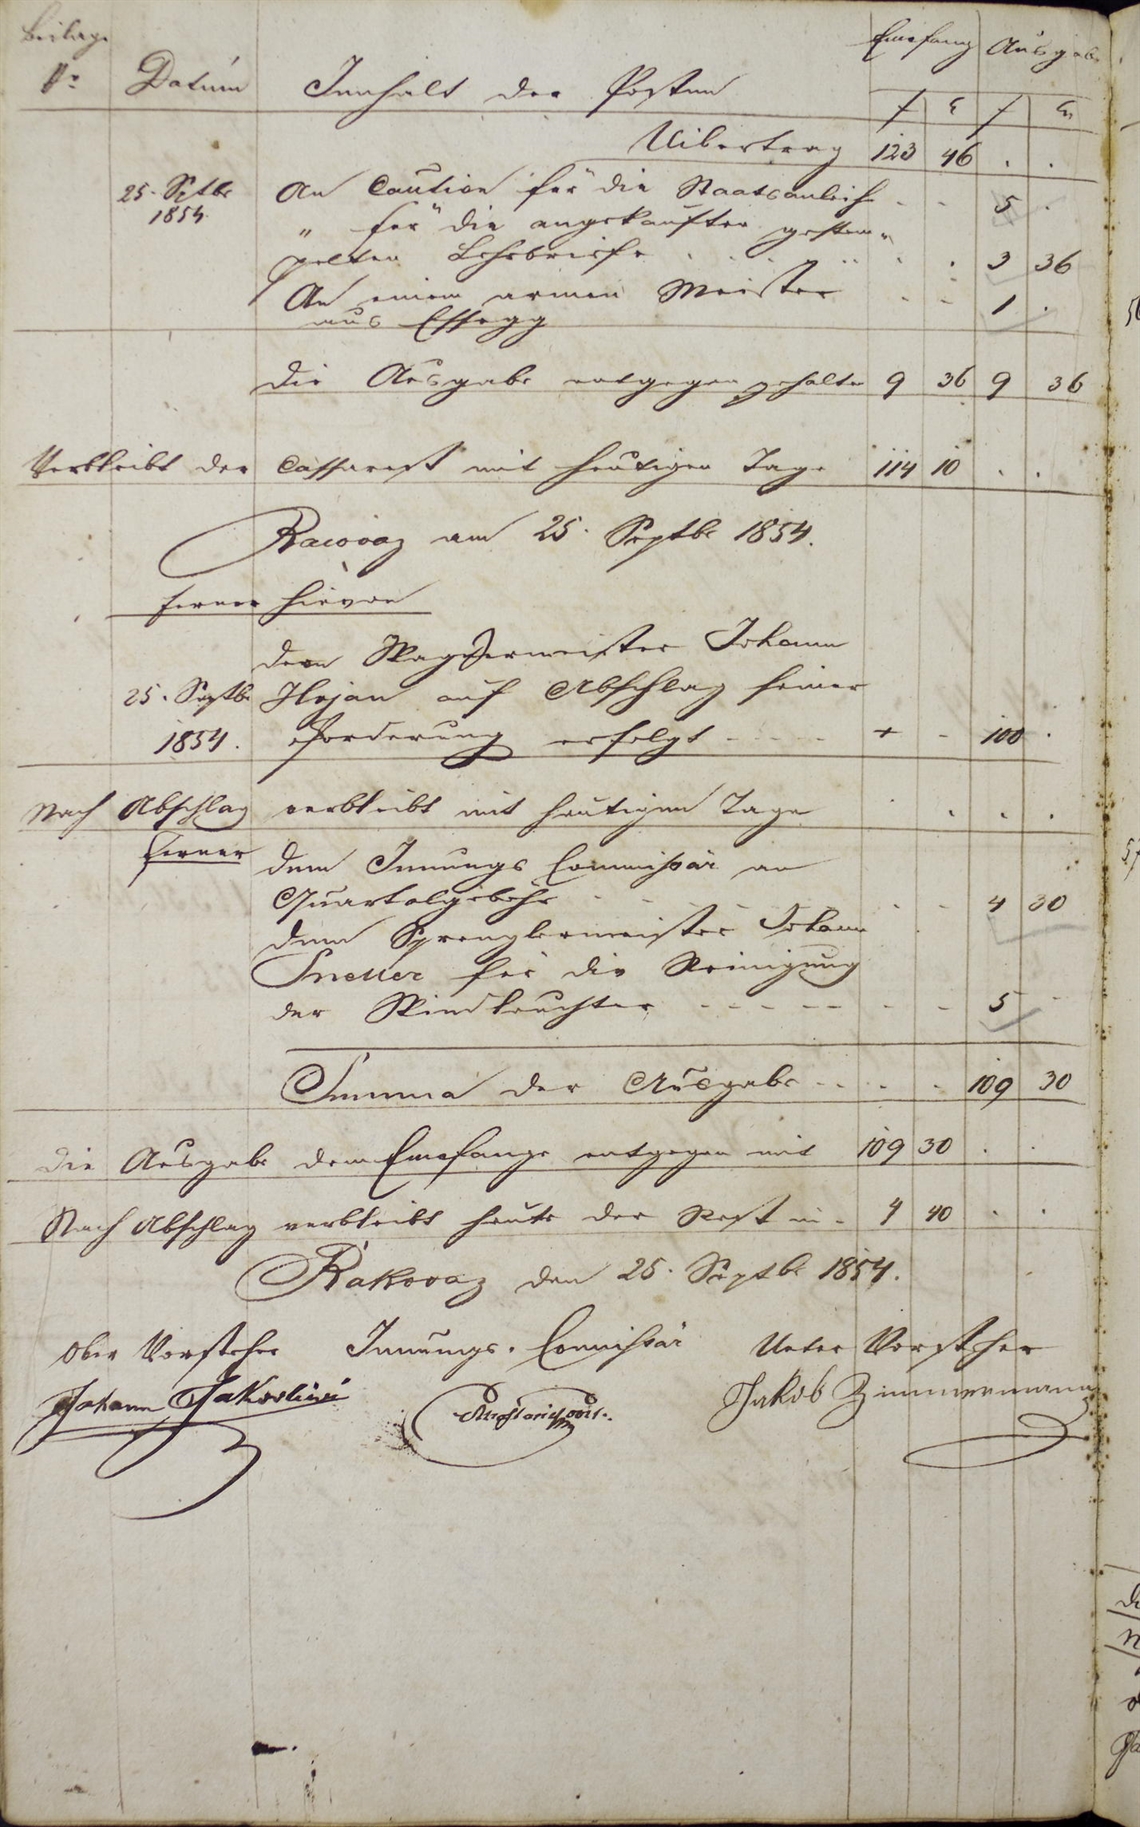 Beilage Empfang Ausgabe
Nr Datum Innhalt der Posten f x f x
Uibertrag 123 46 . .
25. Sptbr An Caution für die Staatsanleihe - - 5 .
1854 " für die angekauften gestem=
pelten Lehrbriefe . . . . . . 3 36
An einem armen Meister - - 1 .
aus Essegg
die Ausgabe entgegen gehalten 9 36 9 36
Verbleibt der Cassarest mit heutigen Tage 114 10 . .
Racovaz am 25. Septbr 1854.
ferner hievon
dem Johann
25. Septbr auf Abschlag seiner
1854. Forderung erfolgt - - - - + - 100 .
Nach Abschlag verbleibt mit heutigem Tage . . . .
ferner dem Innungs Commißär an
Quartalgebühr - - - - - - 4 30
dem Spenglermeister Johann
für die Reinigung
der - - - - - - - 5 -
Summa der Ausgabe - - - - 109 30
Die Ausgabe dem Empfange entgegen mit 109 30 . .
Nach Abschlag verbleibt heute der Rest in - 4 40 . .
Rakovaz den 25. Septbr 1854.
Ober Vorsteher Innungs-Commißär Unter Vorsteher
Johann Jakob Zimmermann